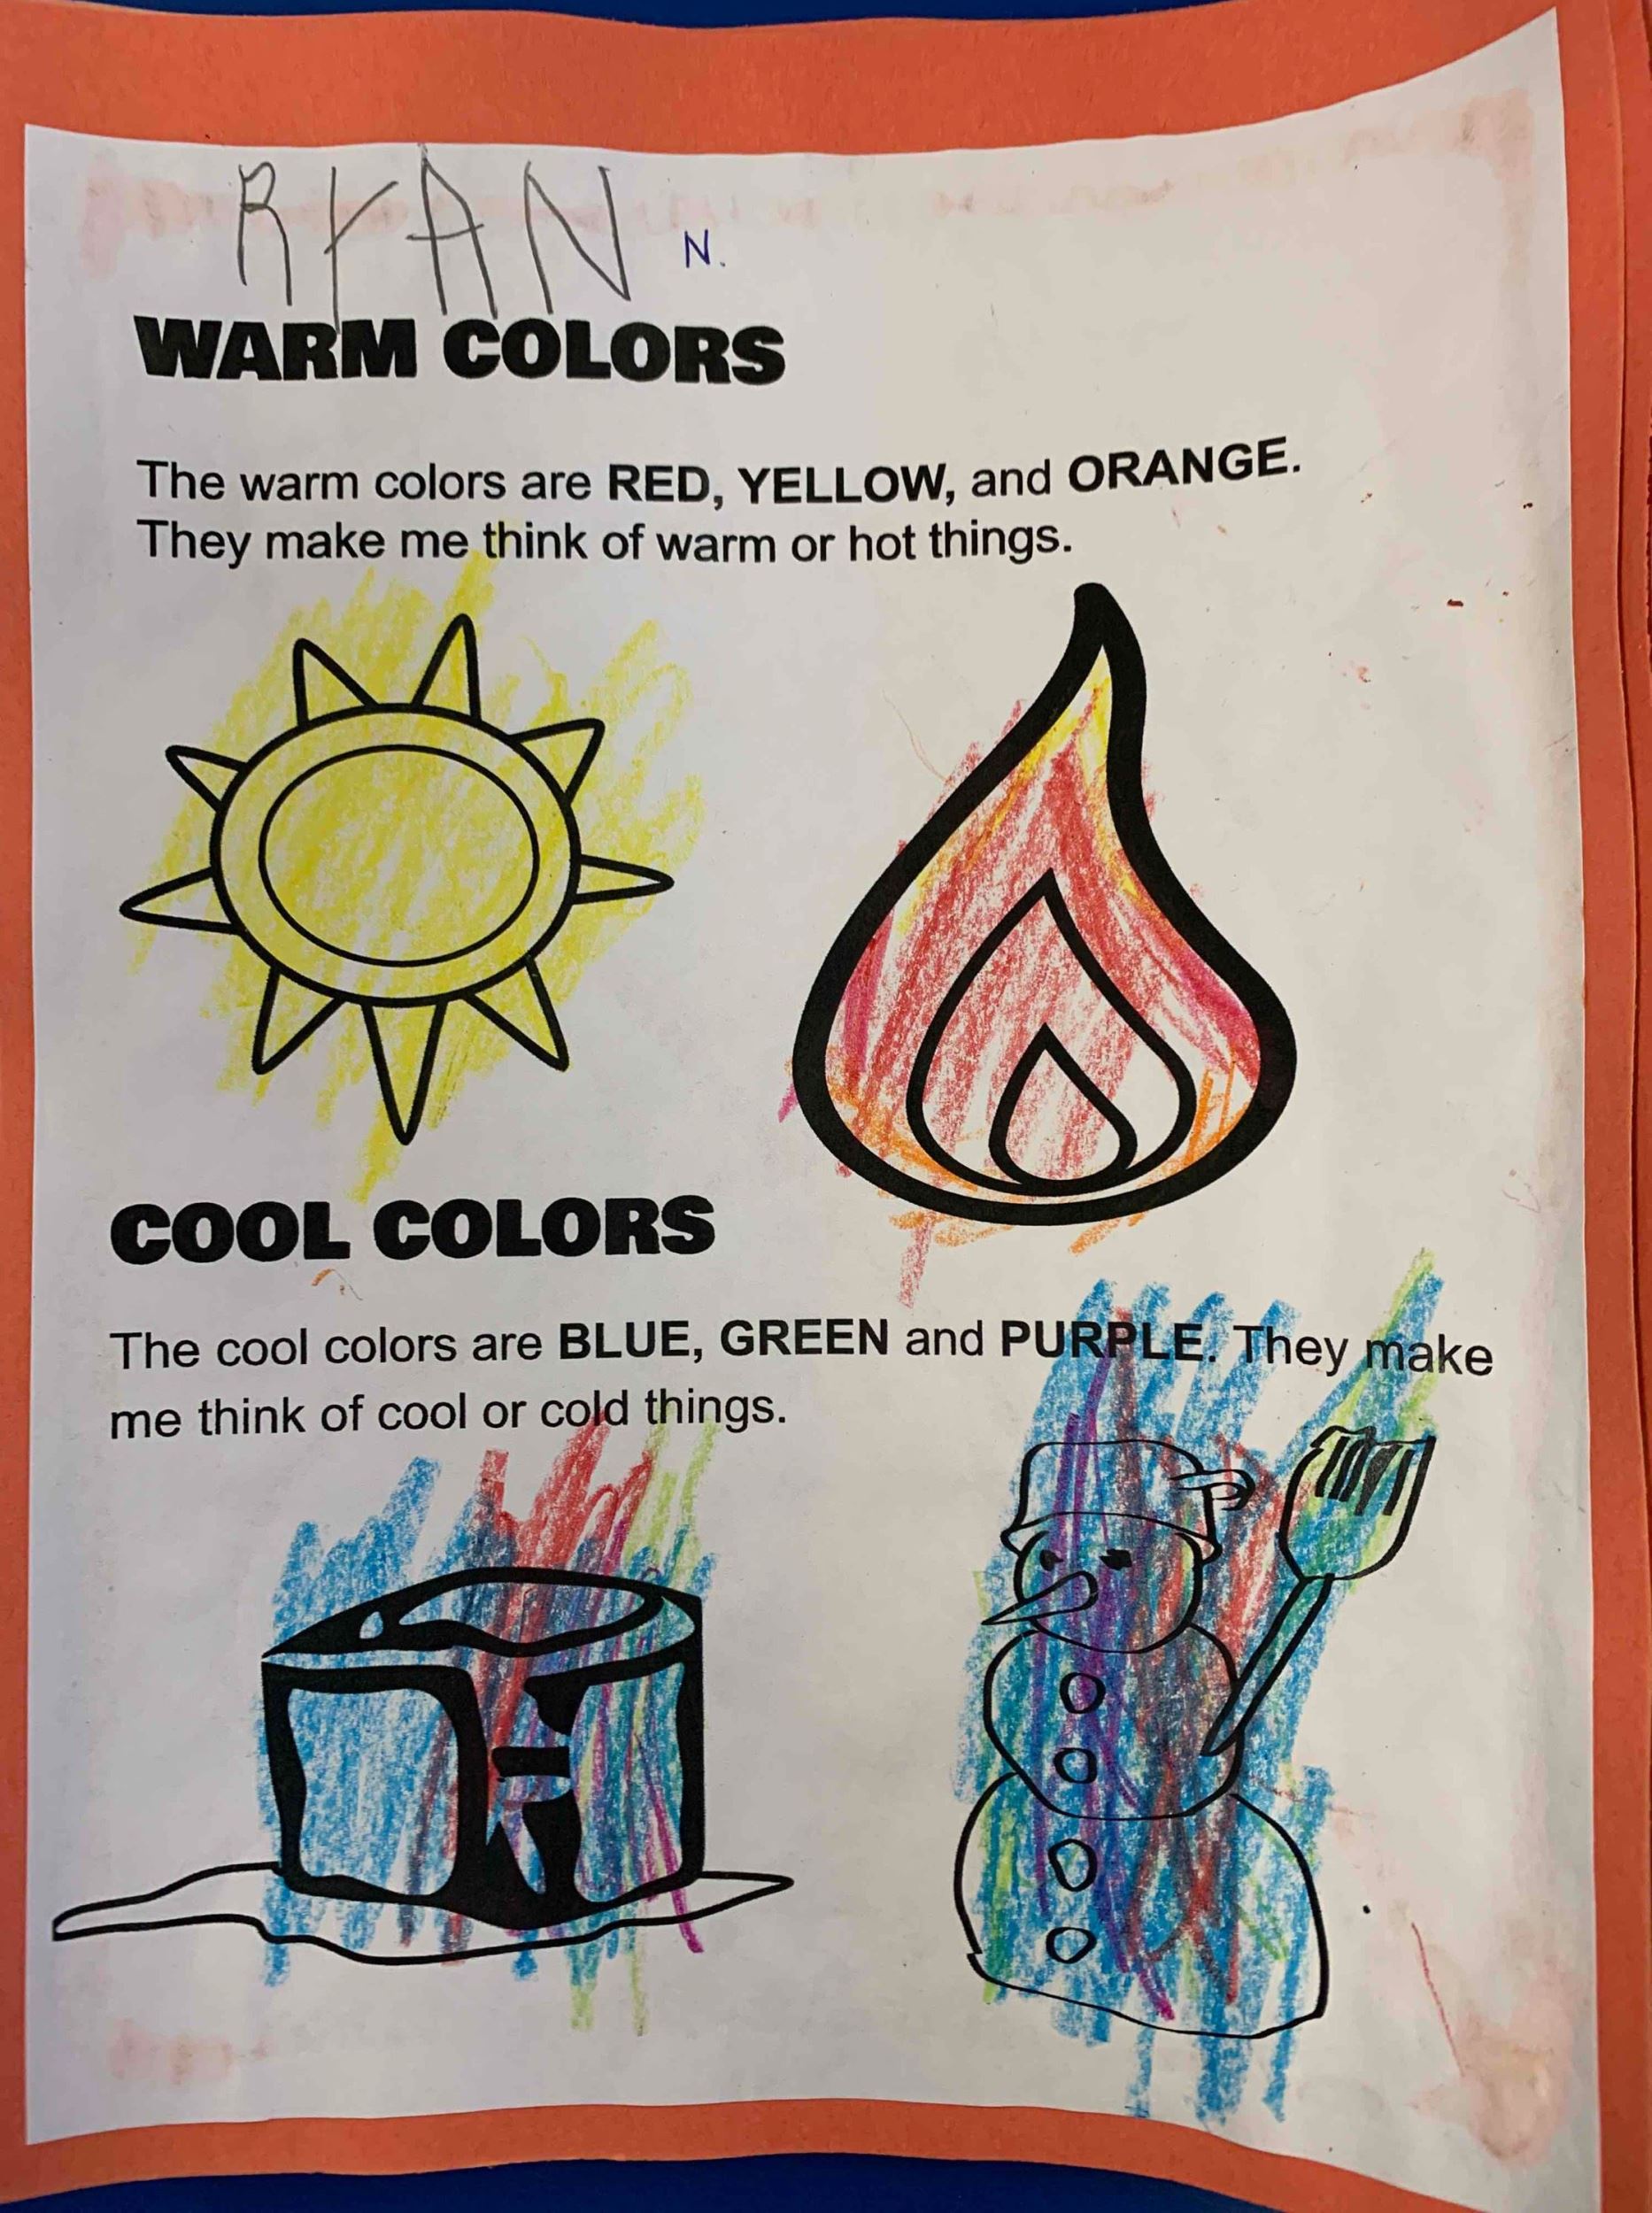 RYAN N.
WARM COLORS
The warm colors are RED, YELLOW, and ORANGE.
They make me think of warm or hot things.
COOL COLORS
The cool colors are BLUE, GREEN and PURPLE. They make
me think of cool or cold things.